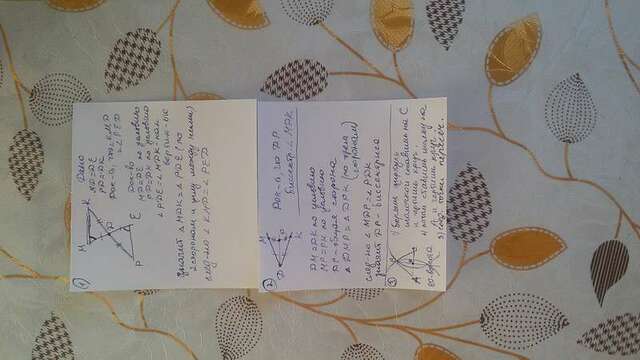 ①
M
K
D
P
E
Дано
MD=DE
PD=DK
Док-ть, что ∠KMD
=∠PED
Док-во
MD=DE по условию
PD=DK по условию
∠PDE=∠MDK-как
вертик-ые
значит △MDK=△PDE (по
2 сторонам и углу между ними)
след-но ∠KMD=∠PED
②
M
D
P
K
Док-ь, что DP
биссектр. ∠MDK
DM=DK по условию
MP=PK по условию
DP-общая сторона
△DMP=△DPK (по трём
сторонам)
след-но ∠MDP=∠PDK
значит DP-биссектриса
③
A
C
1) Берешь циркуль
иголочкой ставишь на C
и чертишь круг.
2) потом ставишь иголку на
A и чертишь круг.
3) соед. точки пересеч.